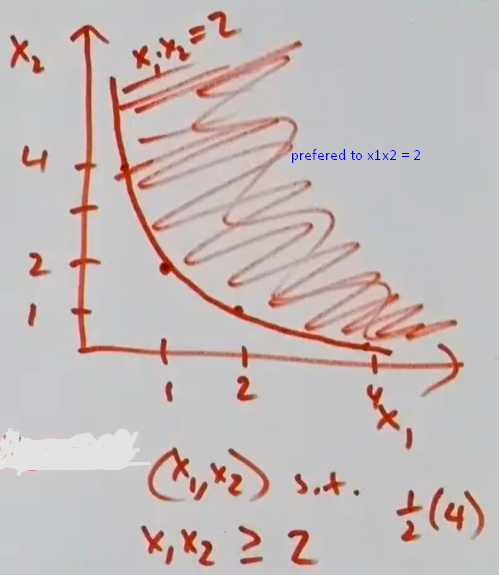 x₂
x₁x₂ = 2
prefered to x1x2 = 2
4
2
1
1 2 4
x₁
(x₁, x₂) s.t.
x₁x₂ ≥ 2
½(4)